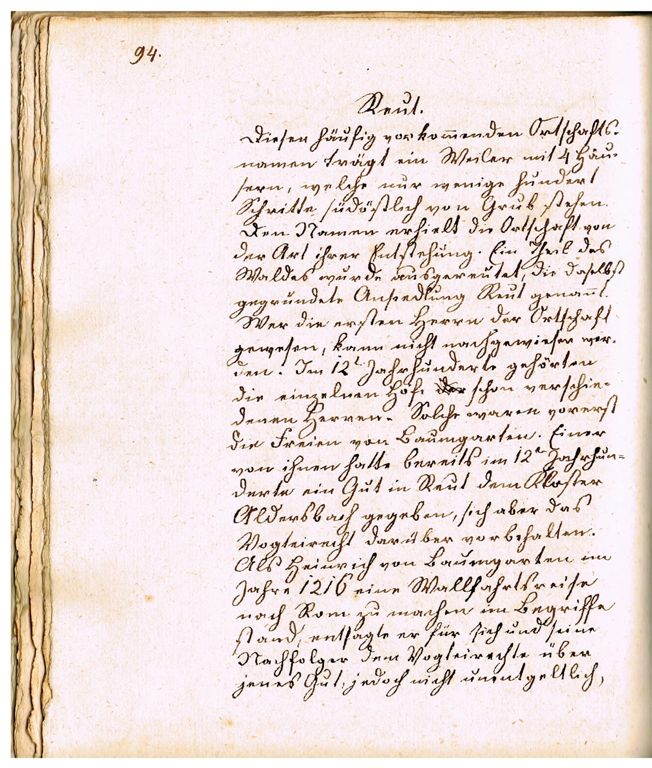 94.
Reut.
Diesen häufig vorkommenden Ortschafts-
namen trägt ein Weiler mit 4 Häu-
sern, welche nur wenige hundert
Schritte südöstlich von Grub stehen.
Den Namen erhielt die Ortschaft von
der Art ihrer Entstehung. Ein Theil des
Waldes wurde ausgereutet, die daselbst
gegründete Ansiedlung Reut genannt.
Wer die ersten Herrn der Ortschaft
gewesen, kann nicht nachgewiesen wer-
den. Im 12t Jahrhunderte gehörten
die einzelnen Höfe schon verschie-
denen Herren. Solche waren vorerst
die Freien von Baumgarten. Einer
von ihnen hatte bereits im 12t Jahrhun-
derte ein Gut in Reut dem Kloster
Aldersbach gegeben, sich aber das
Vogteirecht darüber vorbehalten.
Als Heinrich von Baumgarten im
Jahre 1216 eine Wallfahrtsreise
nach Rom zu machen im Begriffe
stand, entsagte er für sich und seine
Nachfolger dem Vogteirechte über
jenes Gut, jedoch nicht unentgeltlich,